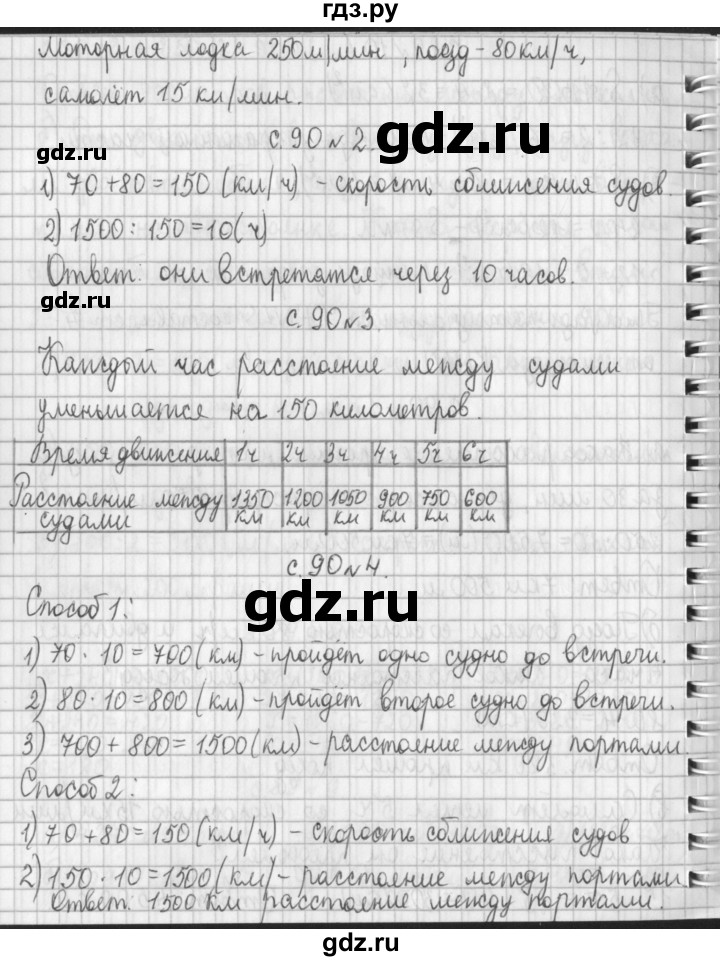 гдз.ру
Моторная лодка 250м/мин, поезд - 80км/ч,
самолёт 15 км/мин.
с. 90 №2.
gdz.ru
gdz.ru
1) 70 + 80 = 150 (км/ч) - скорость сближения судов
2) 1500 : 150 = 10 (ч)
Ответ: они встретятся через 10 часов.
gdz.ru
с. 90 №3.
gdz.ru
Каждый час расстояние между судами
уменьшается на 150 километров.
Время движения 1ч 2ч 3ч 4ч 5ч 6ч
Расстояние между судами 1350 км 1200 км 1050 км 900 км 750 км 600 км
с. 90 №4.
gdz.ru
Способ 1:
1) 70 · 10 = 700 (км) - пройдёт одно судно до встречи.
2) 80 · 10 = 800 (км) - пройдёт второе судно до встречи.
3) 700 + 800 = 1500 (км) - расстояние между порталами.
Способ 2:
gdz.ru
1) 70 + 80 = 150 (км/ч) - скорость сближения судов
2) 150 · 10 = 1500 (км) - расстояние между порталами
Ответ: 1500 км расстояние между порталами.
gdz.ru
gdz.ru